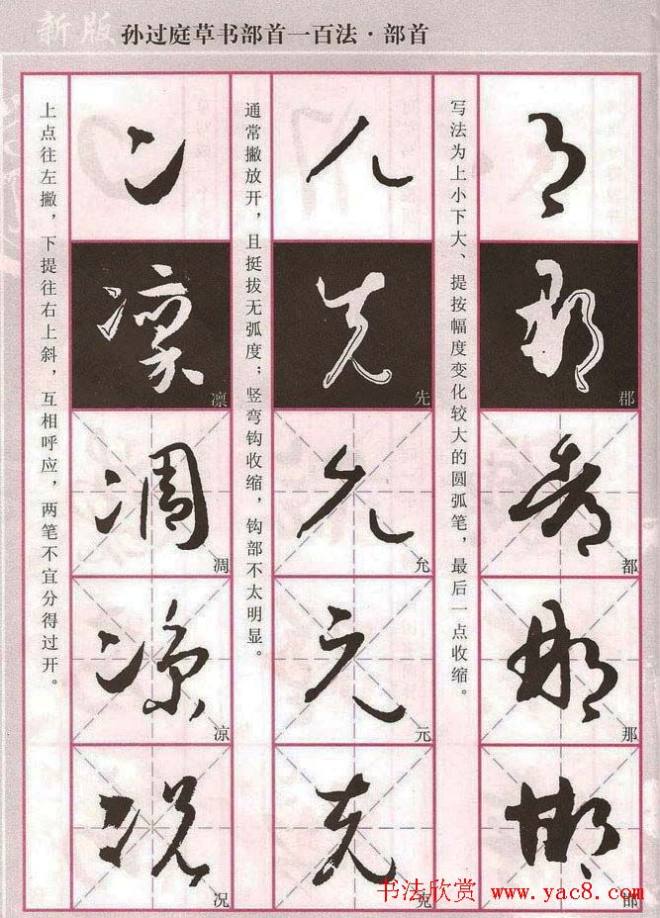 新版
孙过庭草书部首一百法·部首
写法为上小下大、提按幅度变化较大的圆弧笔，最后一点收缩。
郡
都
那
通常撇放开，且挺拔无弧度；竖弯钩收缩，钩部不太明显。
先
允
元
克
上点往左撇，下提往右上斜，互相呼应，两笔不宜分得过开。
凛
凋
凉
况
书法欣赏 www.yac8.com